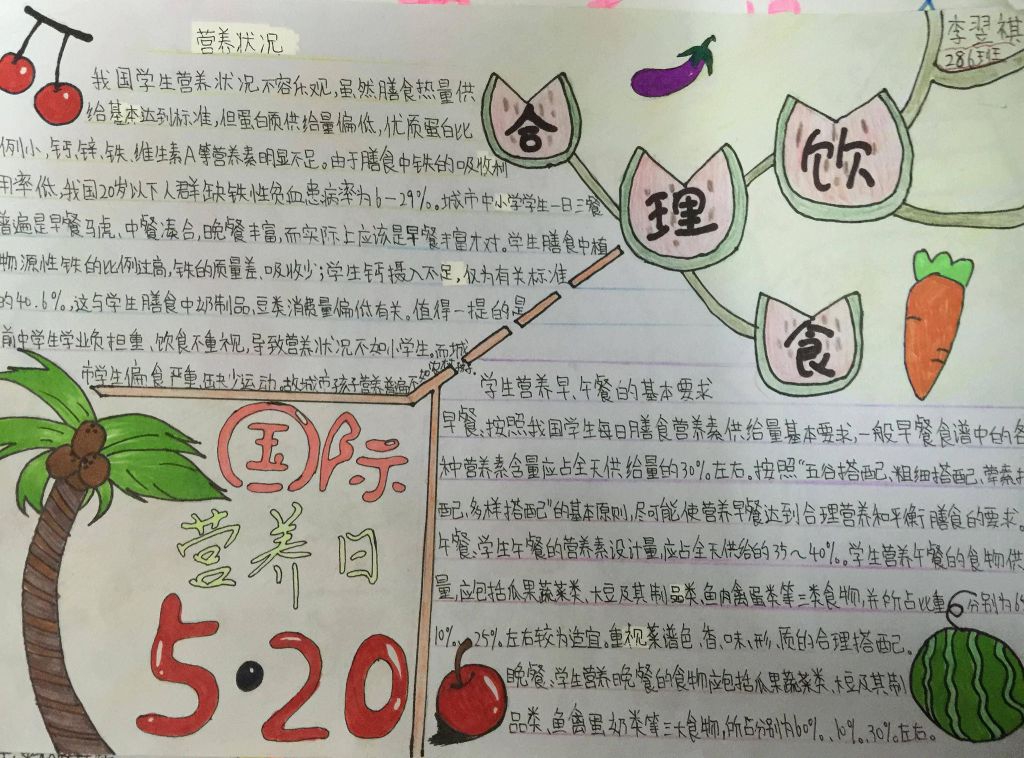 营养状况
我国学生营养状况不容乐观,虽然膳食热量供
给基本达到标准,但蛋白质供给量偏低,优质蛋白比
例小,钙、锌、铁、维生素A等营养素明显不足。由于膳食中铁的吸收利
用率低,我国20岁以下人群缺铁性贫血患病率为6-29%。城市中小学学生一日三餐
普遍是早餐马虎、中餐凑合,晚餐丰富,而实际上应该是早餐丰富才对。学生膳食中植
物源性铁的比例过高,铁的质量差、吸收少;学生钙摄入不足,仅为有关标准
的40.6%,这与学生膳食中奶制品、豆类消费量偏低有关。值得一提的是
前中学生学业负担重、饮食不重视,导致营养状况不如小学生。而城
市学生偏食严重,缺少运动,故城市孩子营养普遍不
合理饮食
李翌祺
286班
国际
营养日
5·20
学生营养早、午餐的基本要求
早餐、按照我国学生每日膳食营养素供给量基本要求,一般早餐食谱中的各
种营养素含量应占全天供给量的30%左右。按照“五谷搭配、粗细搭配、荤素
配、多样搭配”的基本原则,尽可能使营养早餐达到合理营养和平衡膳食的要求。
午餐、学生午餐的营养素设计量应占全天供给的35~40%。学生营养午餐的食物供
量,应包括瓜果蔬菜类、大豆及其制品类、鱼肉禽蛋类等三类食物,并所占比重分别为
10%、25%左右较为适宜。重视菜谱色、香、味、形、质的合理搭配。
晚餐、学生营养晚餐的食物应包括瓜果蔬菜类、大豆及其制
品类、鱼禽蛋奶类等三大食物,所占分别为60%、10%、30%左右。